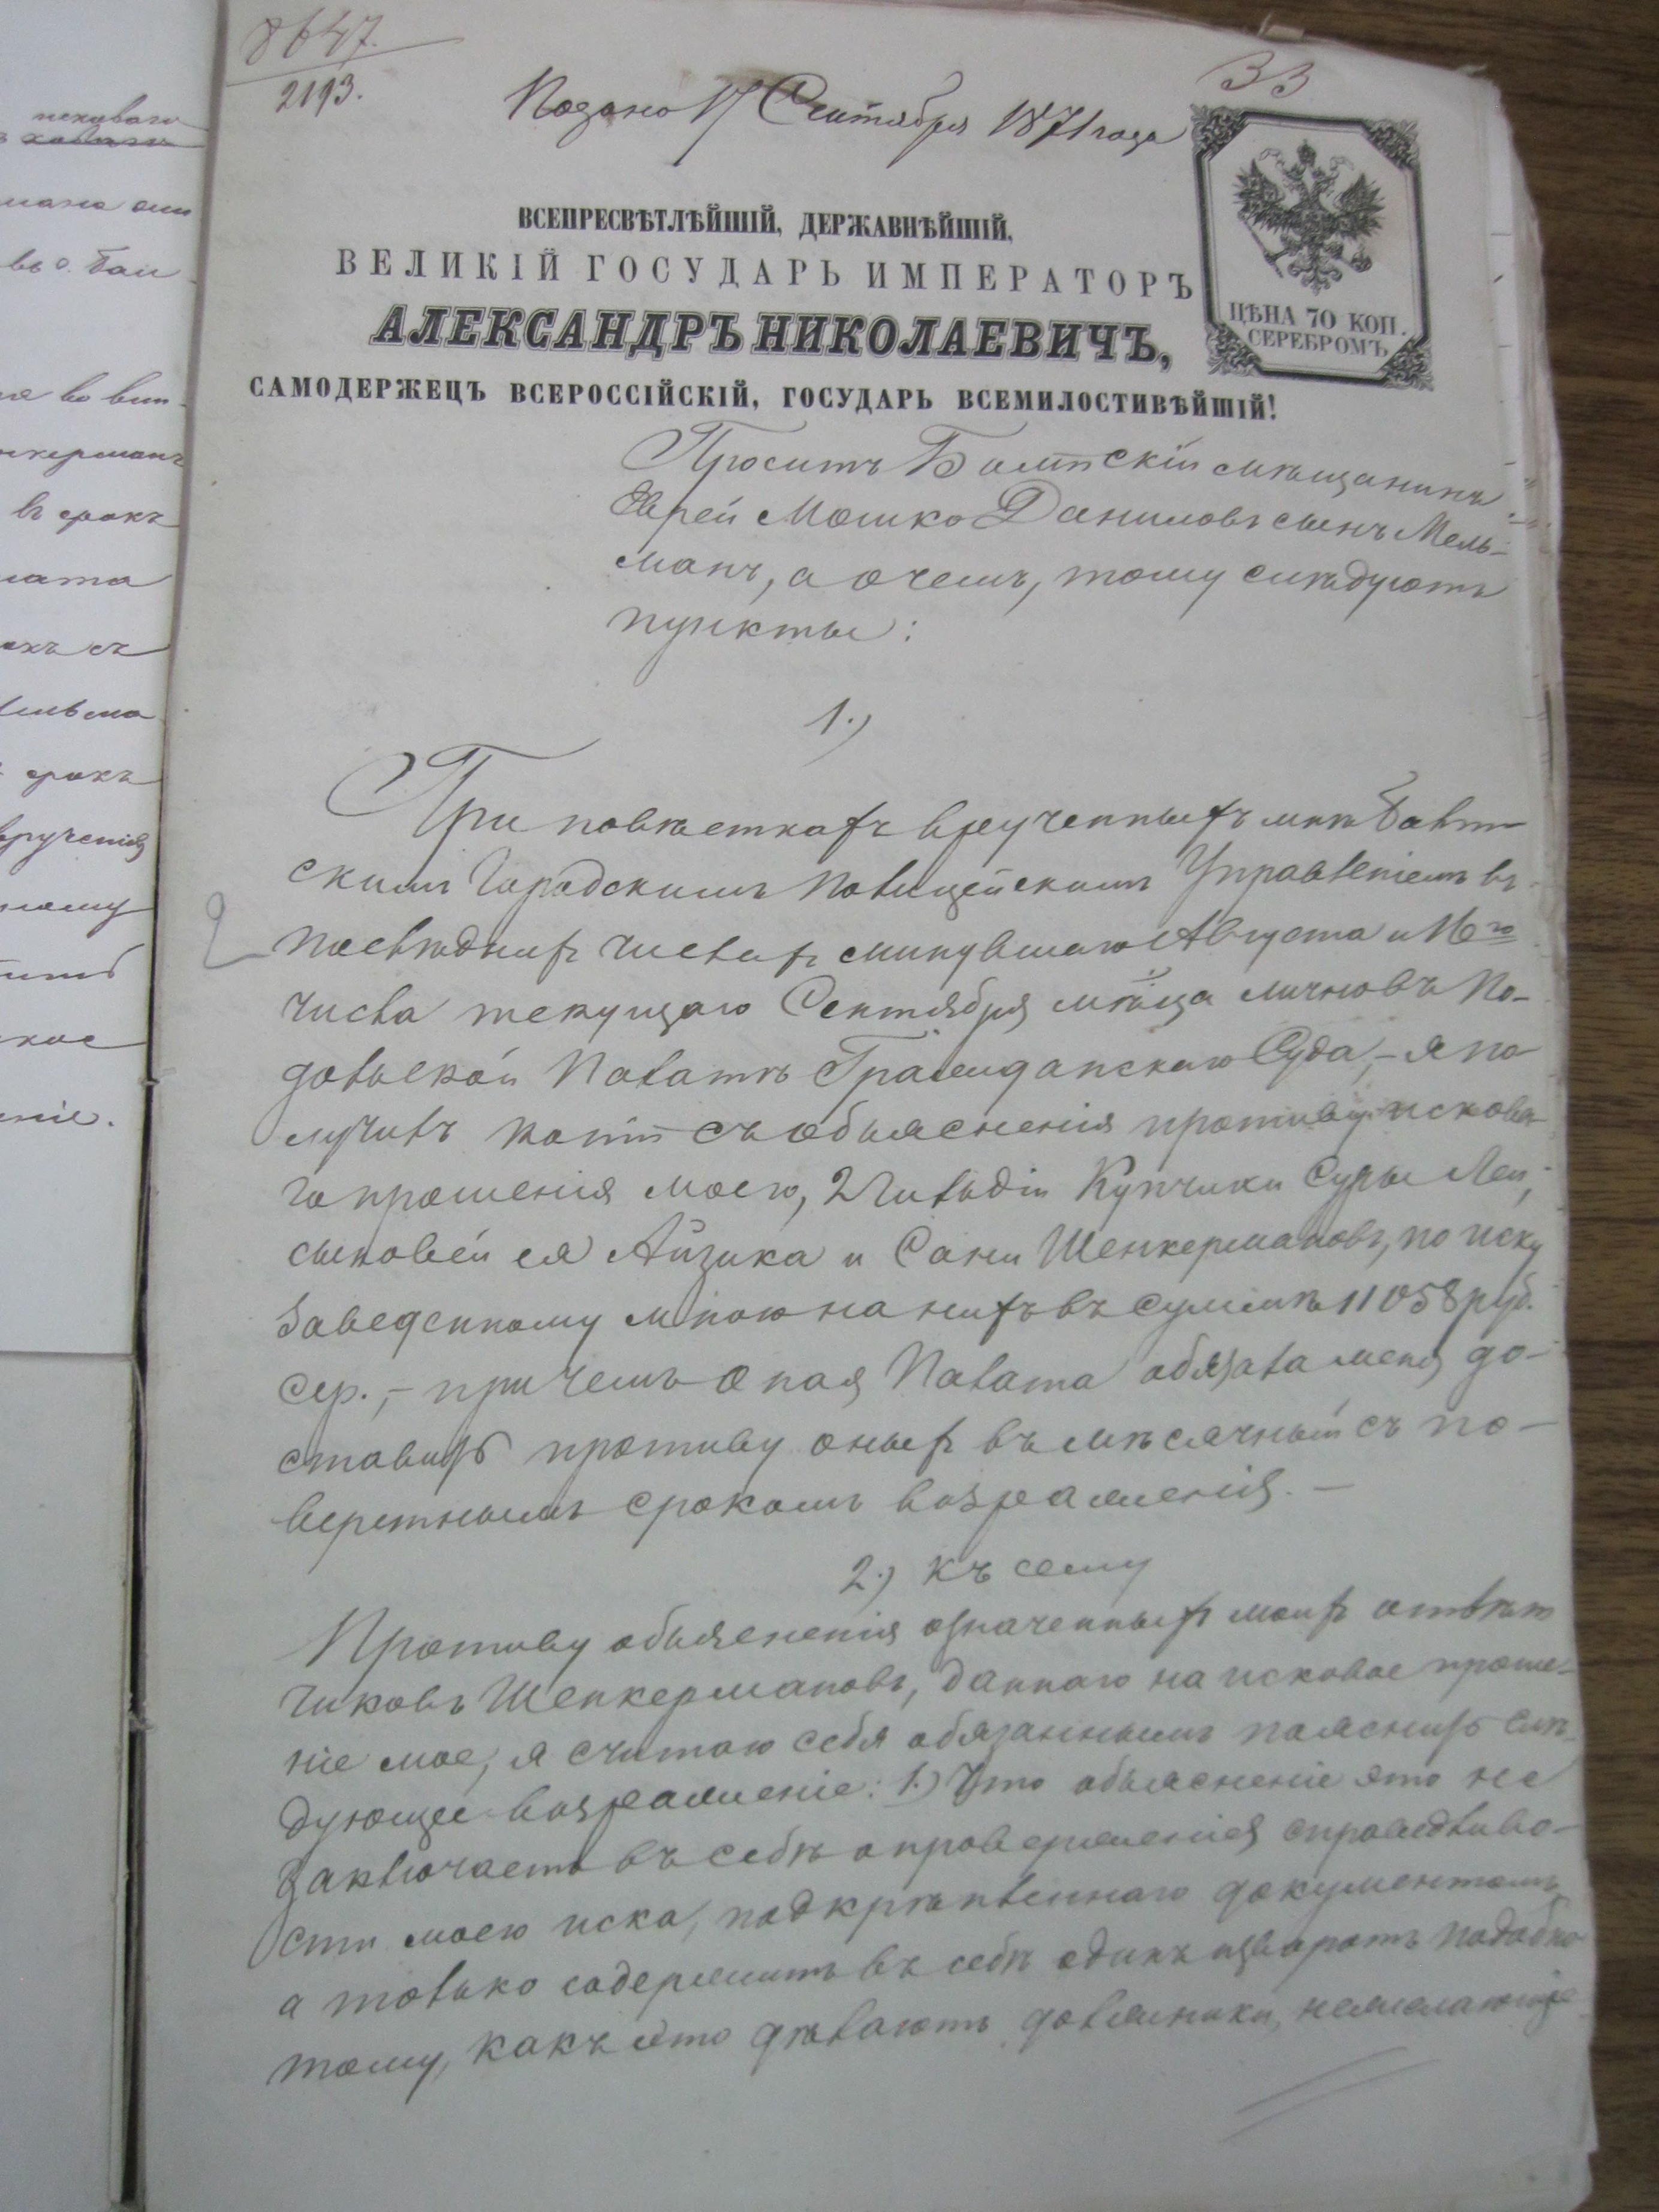 8647.
2193.
33
Подано 17 Сентября 1871 года
ВСЕПРЕСВѢТЛѢЙШІЙ, ДЕРЖАВНѢЙШІЙ,
ВЕЛИКІЙ ГОСУДАРЬ ИМПЕРАТОРЪ
АЛЕКСАНДРЪ НИКОЛАЕВИЧЪ,
САМОДЕРЖЕЦЪ ВСЕРОССІЙСКІЙ, ГОСУДАРЬ ВСЕМИЛОСТИВѢЙШІЙ!
ЦѢНА 70 КОП.
СЕРЕБРОМЪ
Проситъ Балтскій мѣщанинъ
Еврей Мошко Даниловъ сынъ Мель-
манъ, а о чемъ, тому слѣдуютъ
пункты:
1.)
При повѣсткахъ врученныхъ мнѣ Балт-
скимъ Городскимъ Полицейскимъ Управленіемъ въ
послѣднихъ числахъ минувшаго Августа и 16го
числа текущаго Сентября мѣ-ца изъ По-
дольской Палаты Гражданскаго Суда, – я по-
лучилъ копіи съ объясненія противу исковаго
прошенія моего, 2 Гильдіи Купчихи Суры Леи,
сыновей ея Айзика и Сани Шенкермановъ, по иску
заведенному мною на нихъ въ суммѣ 11058 руб.
сер., – при чемъ оная Палата обязала меня до-
ставить противу оныхъ въ мѣсячный съ по-
верстнымъ срокомъ возраженія. –
2.) Къ сему
Противу объясненія означенныхъ моихъ отвѣт
чиковъ Шенкермановъ, даннаго на исковое проше-
ніе мое, я считаю себя обязаннымъ пояснить слѣ-
дующее возраженіе: 1.) Что объясненіе это не
заключаетъ въ себѣ опроверженія справедливо-
сти моего иска, подкрѣпленнаго документомъ
а только содержитъ въ себѣ одинъ изворотъ подобно
тому, какъ это дѣлаютъ должники, нежелающіе